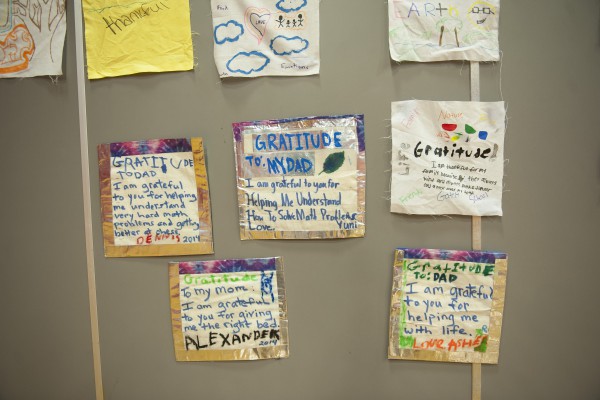 thankful
LOVE
EARTH
DAY
GRATITUDE
TO DAD
I am grateful
to you for helping
me understand
very hard math
problems and getting
better at chess.
DENNIS 2014
GRATITUDE
TO: MY DAD
I am grateful to you for
Helping Me Understand
How To Solve Math Problems
Love, Yumi
Gratitude
I am thankful for my
Gratitude
To my mom.
I am grateful
to you for giving
me the right bed.
ALEXANDER
2014
GRATITUDE
TO: DAD
I am grateful
to you for
helping me
with life.
LOVE ASHER